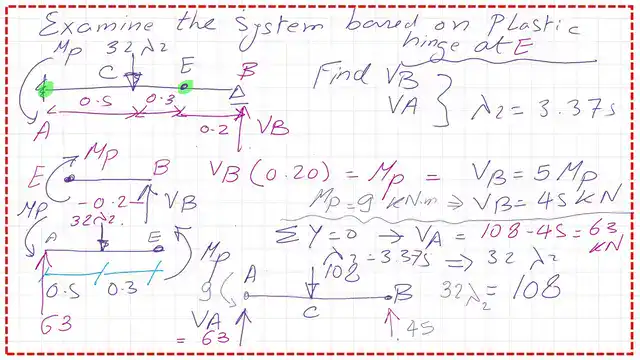 Examine the system based on Plastic
hinge at E
Mp 32 λ2
C E B
0.5 0.3
0.2 VB
A
Find VB
VA
λ2 = 3.375
Mp
E B
0.2
VB
VB (0.20) = Mp = VB = 5 Mp
Mp = 9 kN.m ⇒ VB = 45 kN
Mp 32λ2
A E
Mp
0.5 0.3
63
ΣY=0 → VA = 108-45 = 63
kN
λ2 = 3.375 ⇒ 32 λ2
32λ2 = 108
108
9 A B
C
VA
= 63
45